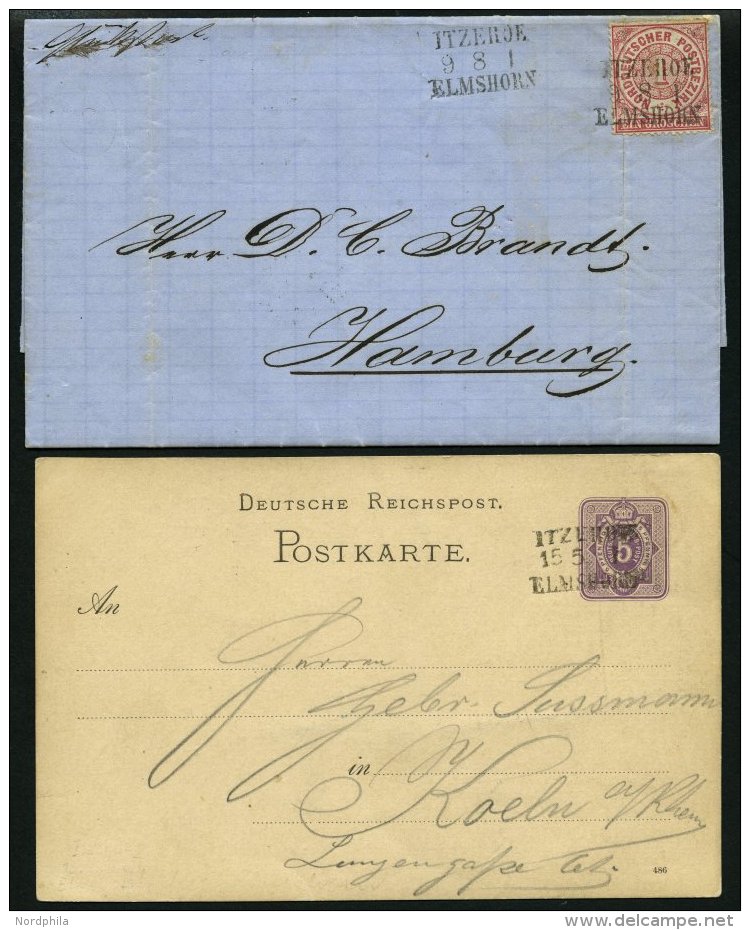 ITZEHOE
9 8 1
ELMSHORN
ITZEHOE
8 1
ELMSHORN
NORDDEUTSCHER POSTBEZIRK
1
Herr D. C. Brandt.
Hamburg.
DEUTSCHE REICHSPOST.
POSTKARTE.
ITZEHOE
15 5
ELMSHORN
5
An
Herren
Gebr. Sussmann
in Koeln a/Rhein
486
Nordphila
delcampe.net